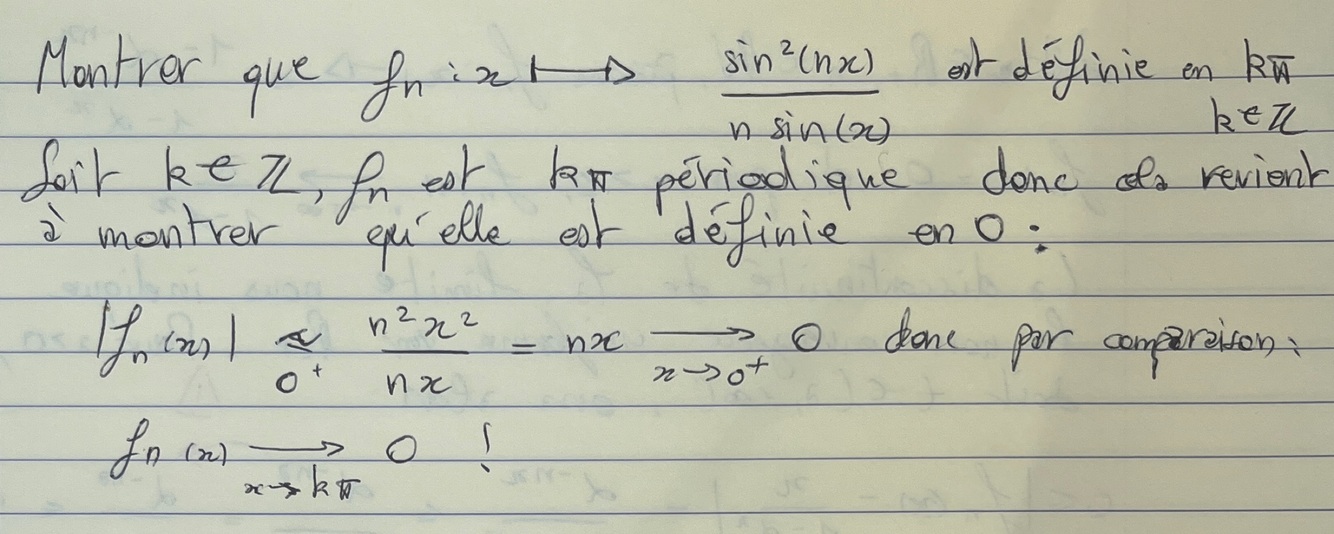 Montrer que fₙ : x ⟼ sin²(nx) / (n sin(x)) est définie en kπ k ∈ ℤ
Soit k ∈ ℤ, fₙ est kπ périodique donc revient
à montrer qu'elle est définie en 0 :
|fₙ(x)| ~ 0⁺ n²x² / nx = nx ⟶ x→0⁺ 0 donc par comparaison :
fₙ(x) ⟶ x→kπ 0 !